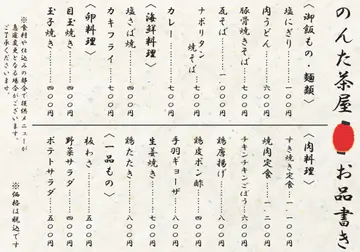 のんた茶屋 お品書き
〈御飯もの・麺類〉
塩にぎり・・一〇〇円
肉うどん・・六〇〇円
豚骨焼きそば・・
瓦そば・・
ナポリタン焼そば・・
カレー・・七〇〇円
〈海鮮料理〉
塩さば焼・・四〇〇円
カキフライ・・七〇〇円
〈卵料理〉
目玉子焼き・・四〇〇円
玉子焼き・・四〇〇円
※食材や仕込みの都合で提供メニューが
急遽変更となる場合がございます。
ご了承くださいませ。
〈肉料理〉
すき焼き定食・・一一〇〇円
焼肉定食・・一二〇〇円
チキンチキンごぼう・・六〇〇円
鶏唐揚げ・・
鶏皮ポン酢・・四〇〇円
手羽ギョーザ・・
生姜焼き・・七〇〇円
鶏たたき・・八〇〇円
〈一品もの〉
板わさ・・五〇〇円
野菜サラダ・・四〇〇円
ポテトサラダ・・五〇〇円
※価格は税込です